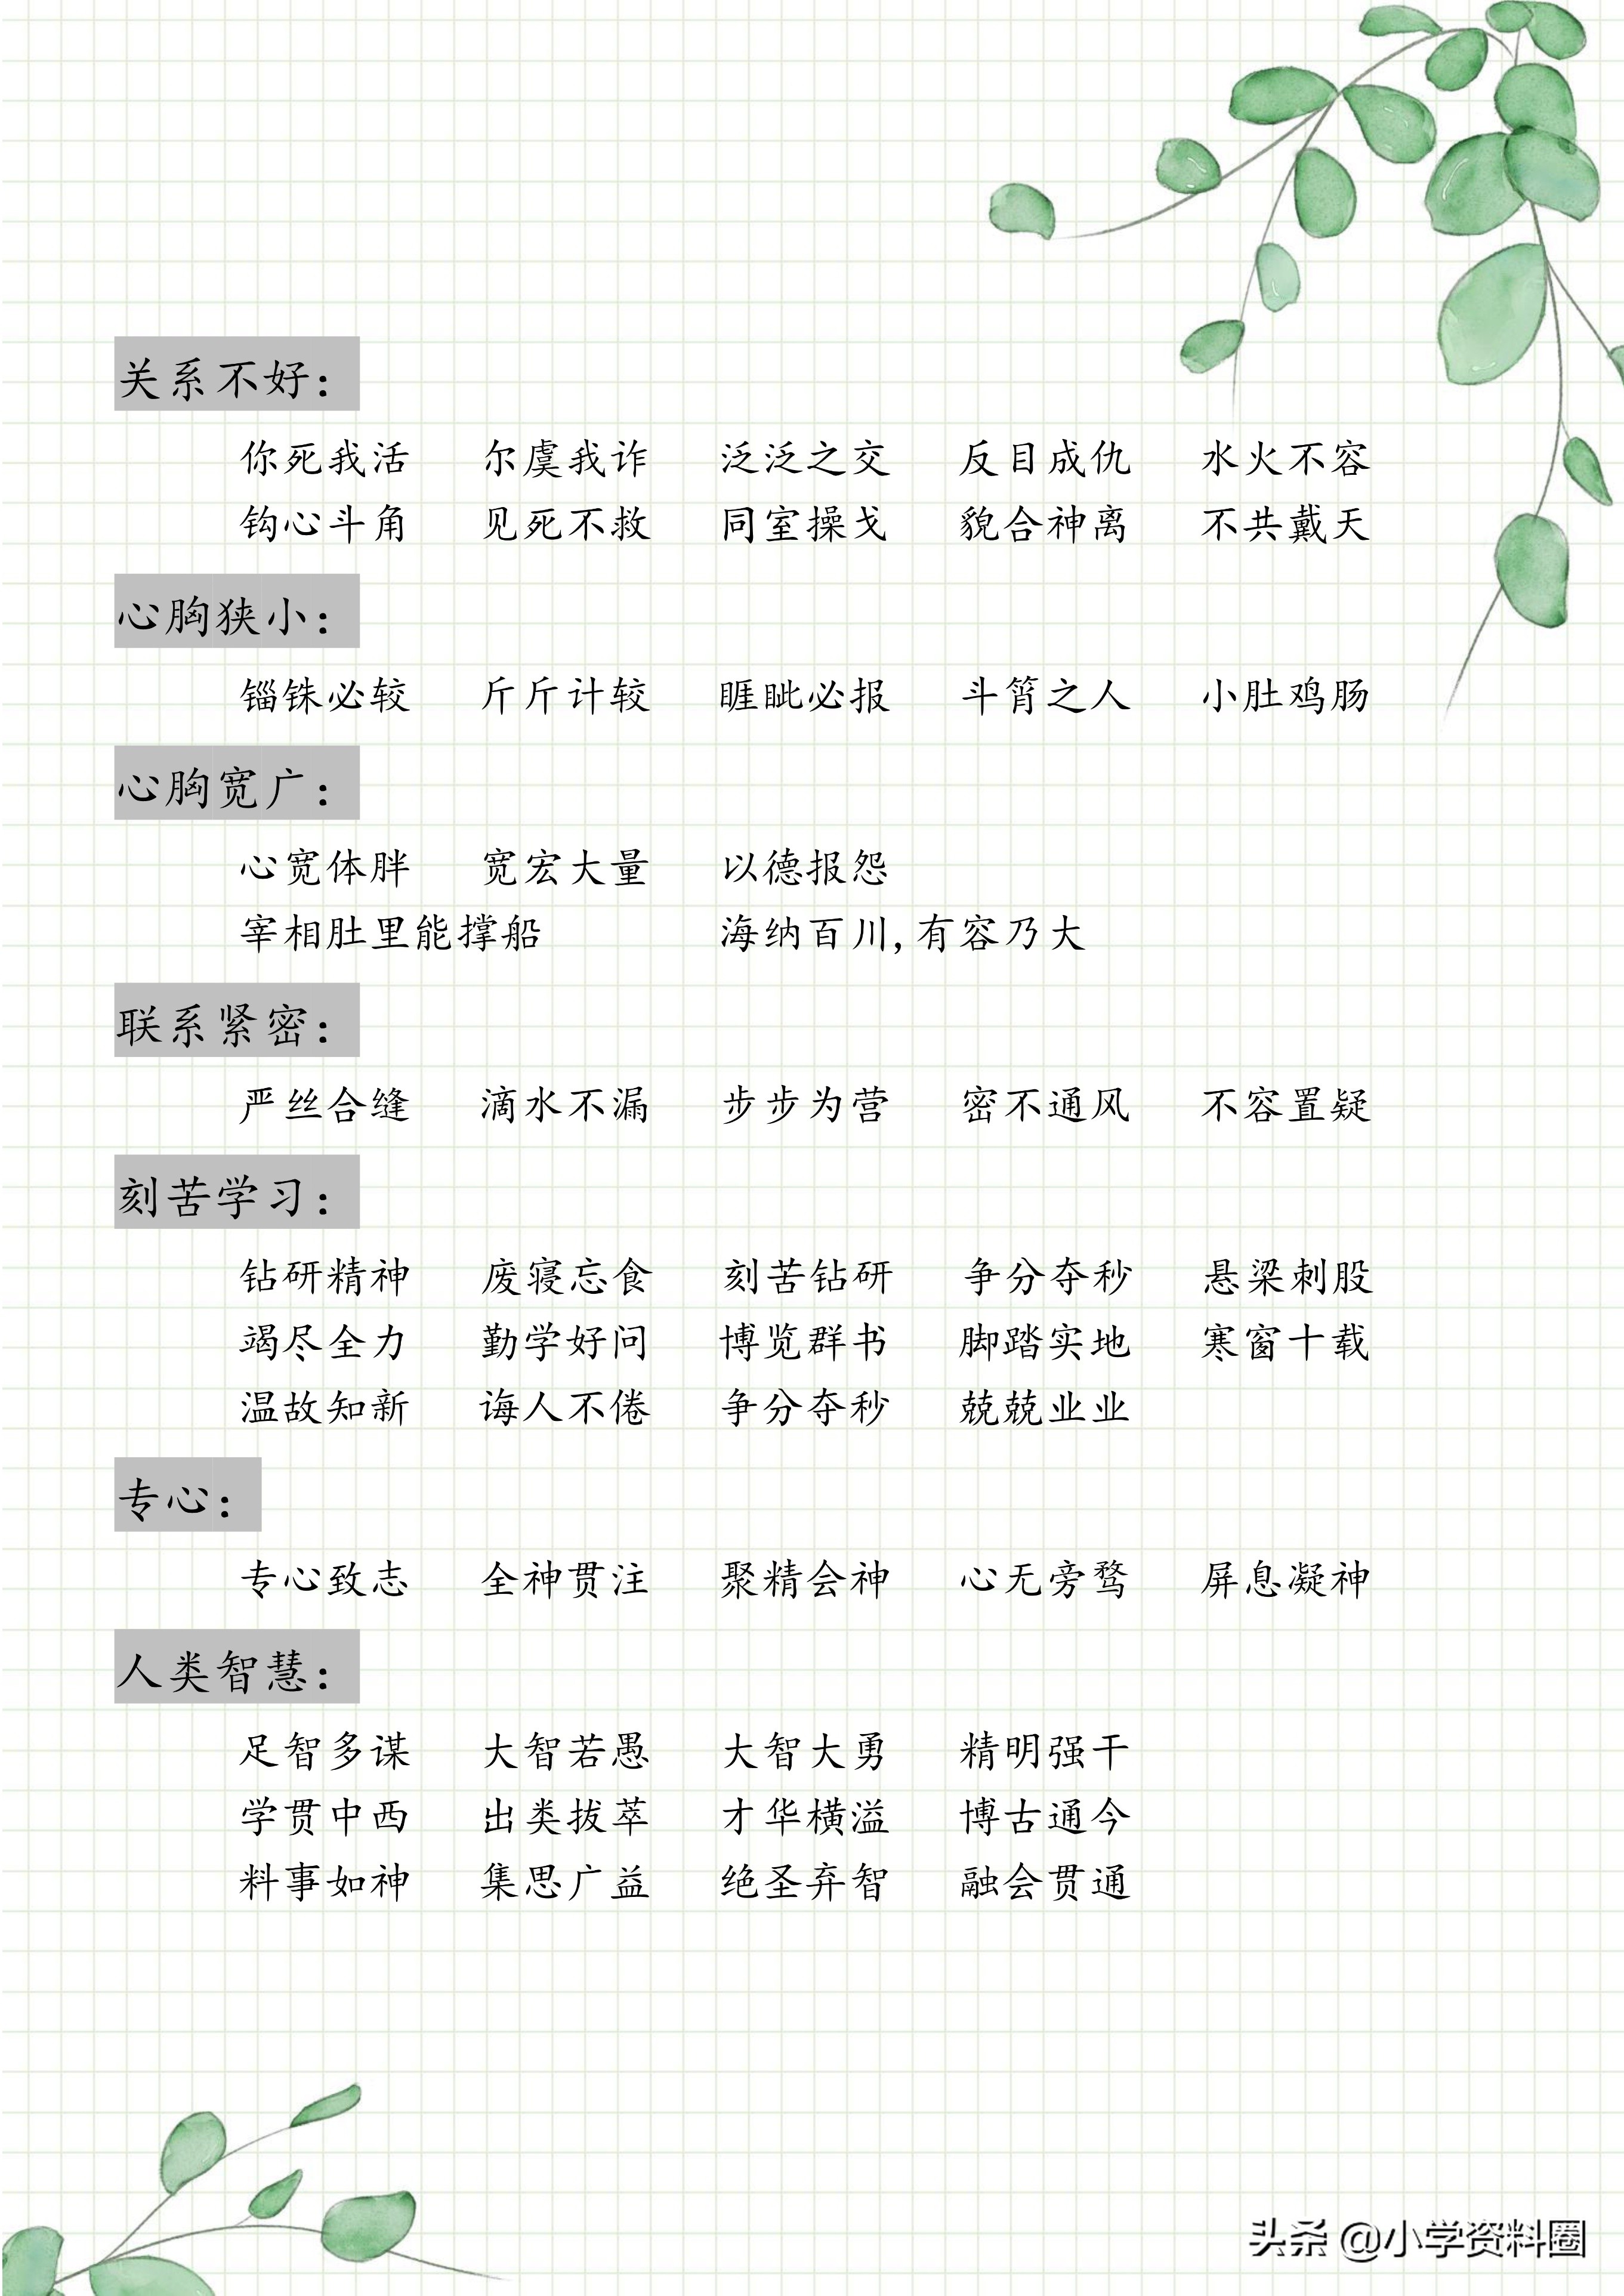 关系不好：
你死我活 尔虞我诈 泛泛之交 反目成仇 水火不容
钩心斗角 见死不救 同室操戈 貌合神离 不共戴天
心胸狭小：
锱铢必较 斤斤计较 睚眦必报 斗筲之人 小肚鸡肠
心胸宽广：
心宽体胖 宽宏大量 以德报怨
宰相肚里能撑船 海纳百川,有容乃大
联系紧密：
严丝合缝 滴水不漏 步步为营 密不通风 不容置疑
刻苦学习：
钻研精神 废寝忘食 刻苦钻研 争分夺秒 悬梁刺股
竭尽全力 勤学好问 博览群书 脚踏实地 寒窗十载
温故知新 诲人不倦 争分夺秒 兢兢业业
专心：
专心致志 全神贯注 聚精会神 心无旁骛 屏息凝神
人类智慧：
足智多谋 大智若愚 大智大勇 精明强干
学贯中西 出类拔萃 才华横溢 博古通今
料事如神 集思广益 绝圣弃智 融会贯通
头条 @小学资料圈